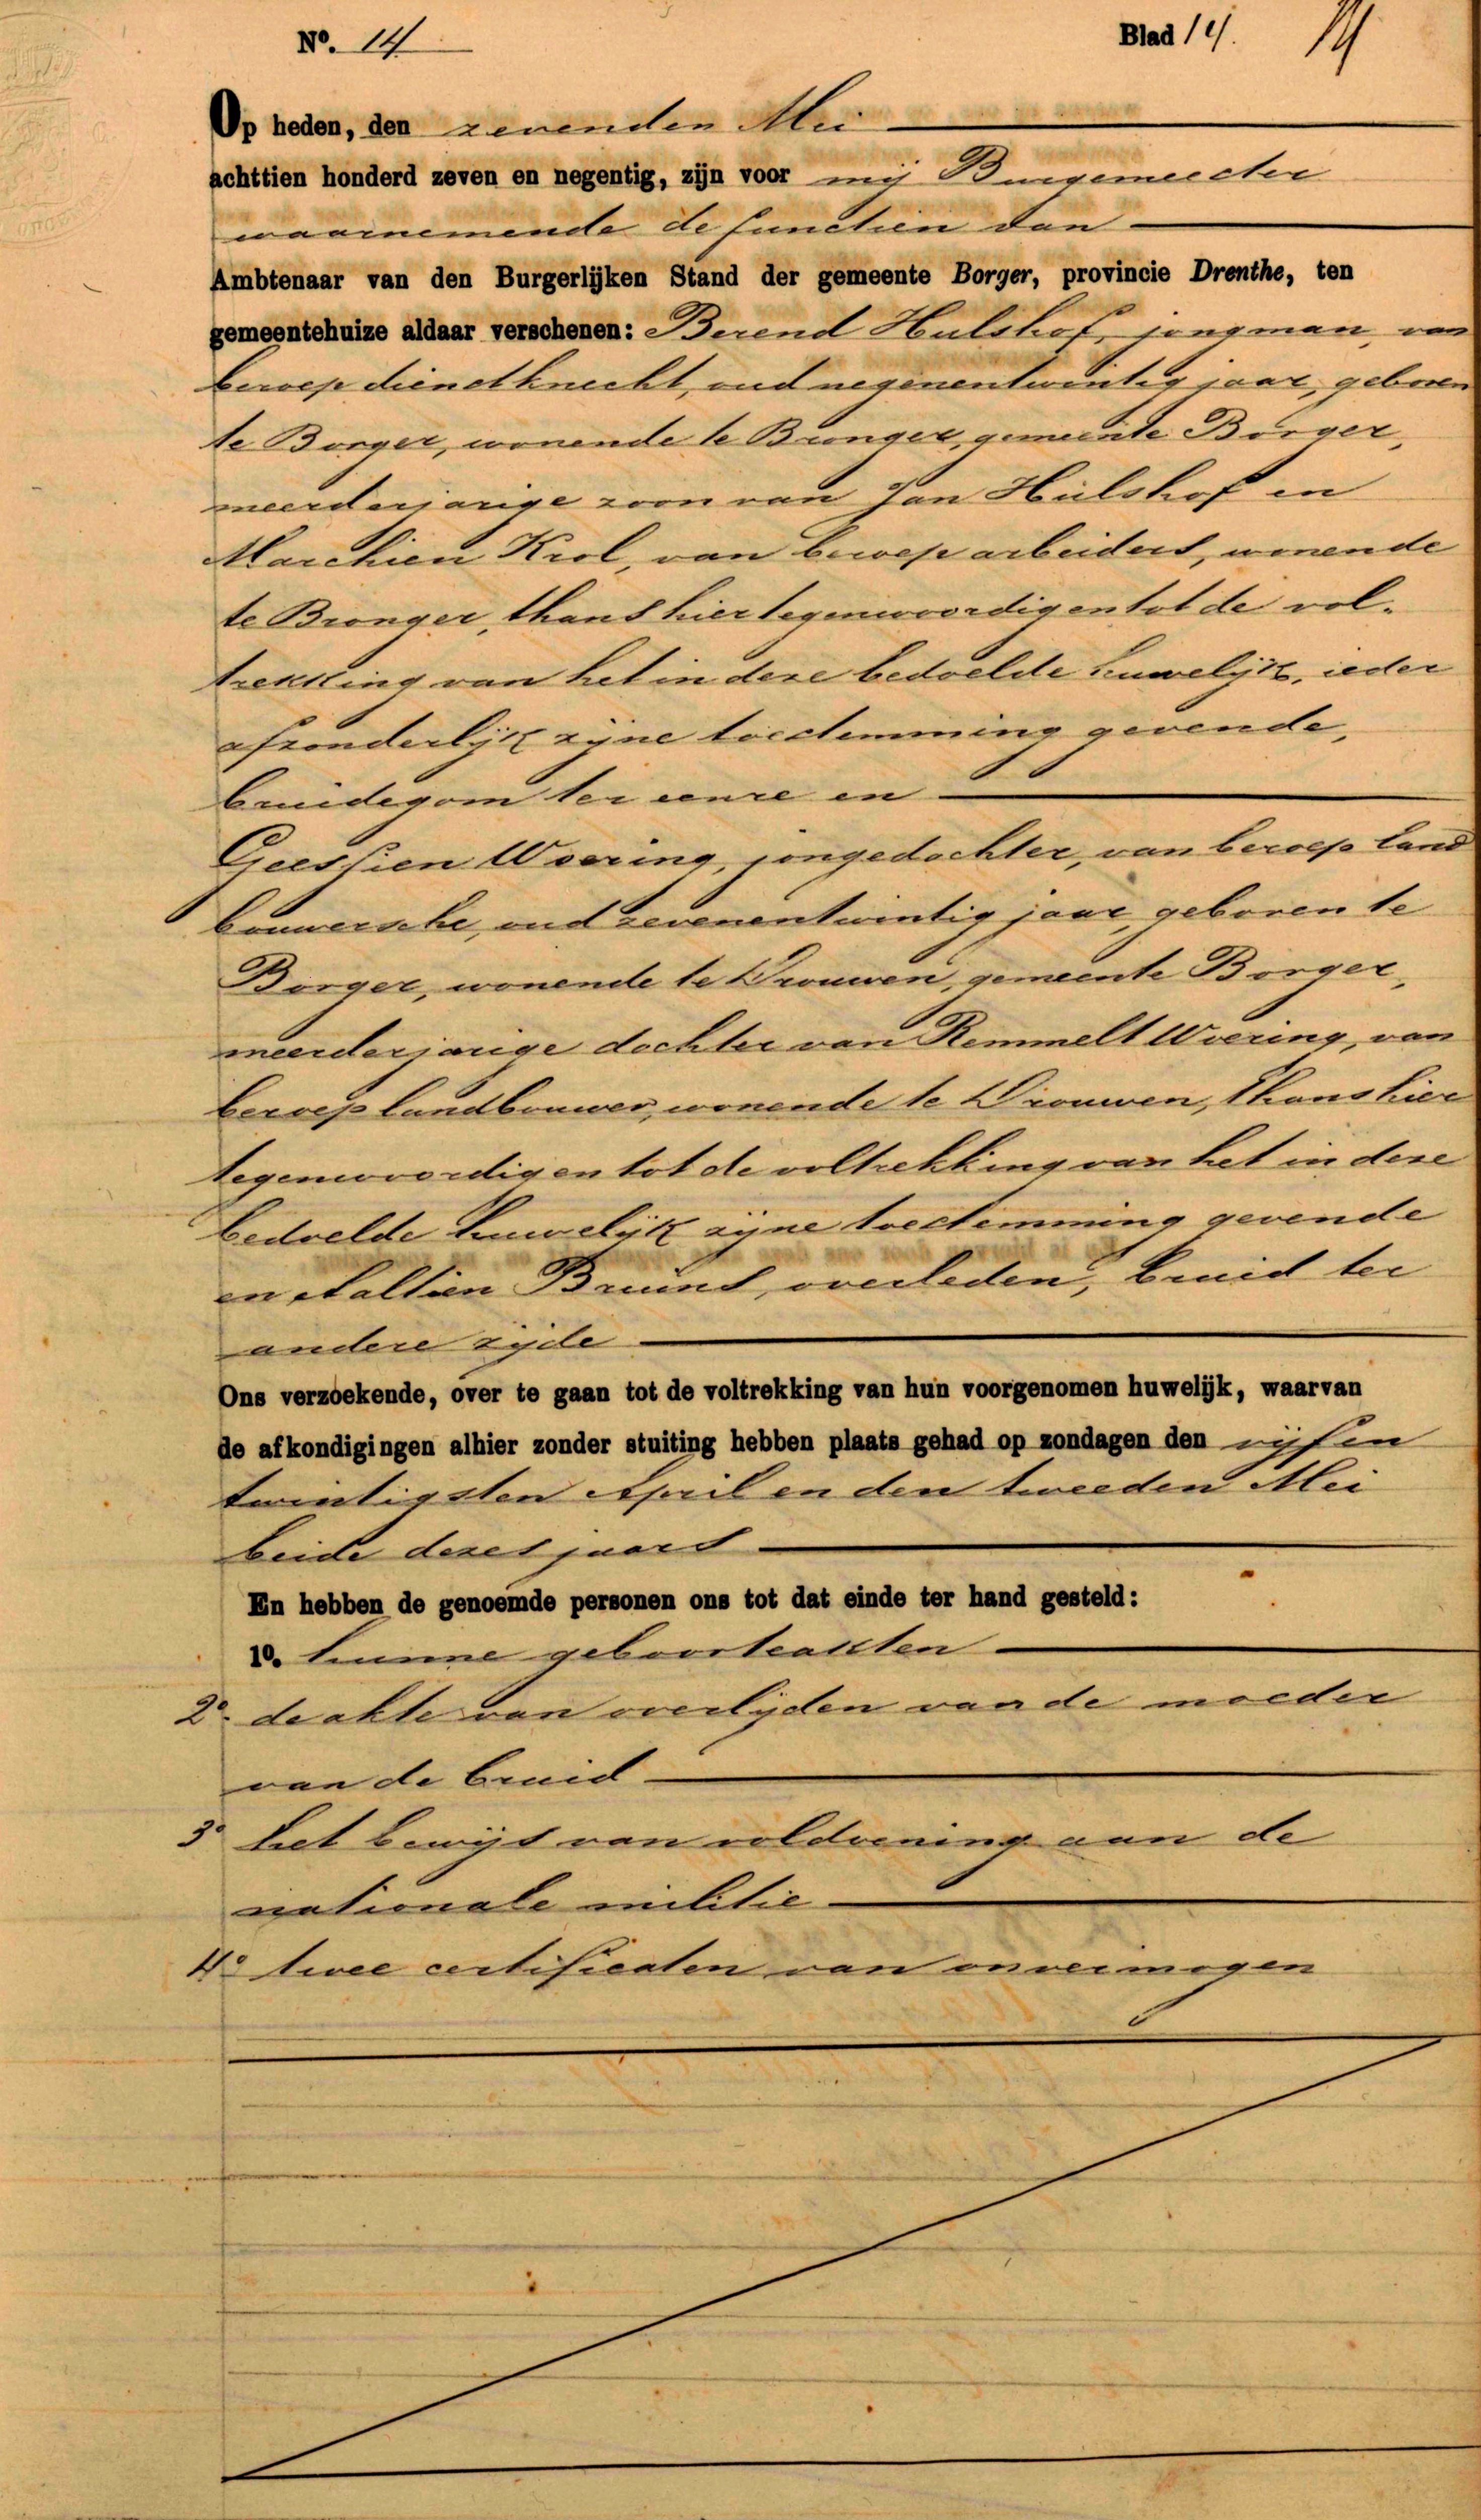 Nº. 14
Blad 14. 14
Op heden, den zevenden Mei
achttien honderd zeven en negentig, zijn voor mij Burgemeester
waarnemende de functien van
Ambtenaar van den Burgerlijken Stand der gemeente Borger, provincie Drenthe, ten
gemeentehuize aldaar verschenen: Berend Hulshof, jongman, van
beroep dienstknecht, oud negenentwintig jaar, geboren
te Borger, wonende te Bronger, gemeente Borger,
meerderjarige zoon van Jan Hulshof en
Marchien Krol, van beroep arbeiders, wonende
te Bronger, thans hier tegenwoordig en tot de vol-
trekking van het in deze bedoelde huwelijk, ieder
afzonderlijk zijne toestemming gevende,
bruidegom ter eenre en
Geessien Woering, jongedochter, van beroep land
bouwersche, oud zevenentwintig jaar, geboren te
Borger, wonende te Drouwen, gemeente Borger,
meerderjarige dochter van Remmelt Woering, van
beroep landbouwer, wonende te Drouwen, thans hier
tegenwoordig en tot de voltrekking van het in deze
bedoelde huwelijk zijne toestemming gevende
en Aaltien Bruins, overleden, bruid ter
andere zijde
Ons verzoekende, over te gaan tot de voltrekking van hun voorgenomen huwelijk, waarvan
de afkondigingen alhier zonder stuiting hebben plaats gehad op zondagen den vijfen
twintigsten April en den tweeden Mei
beide dezes jaars
En hebben de genoemde personen ons tot dat einde ter hand gesteld:
1º. hunne geboorteakten
2º. de akte van overlijden van de moeder
van de bruid
3º het bewijs van voldoening aan de
nationale militie
4º twee certificaten van onvermogen